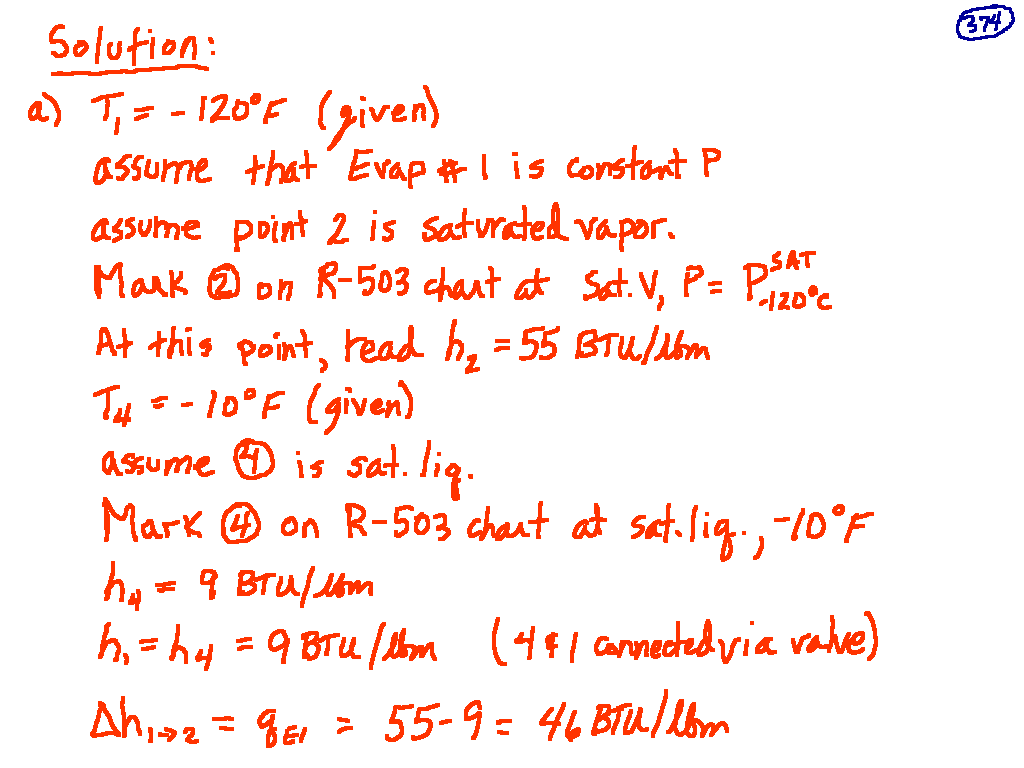 374
Solution:
a) T₁ = -120°F (given)
assume that Evap #1 is constant P
assume point 2 is saturated vapor.
Mark ② on R-503 chart at Sat. V, P = P^SAT_-120°C
At this point, read h₂ = 55 BTU/lbm
T₄ = -10°F (given)
assume ④ is sat. liq.
Mark ④ on R-503 chart at sat. liq., -10°F
h₄ = 9 BTU/lbm
h₁ = h₄ = 9 BTU/lbm (4 & 1 connected via valve)
Δh₁→₂ = q_E1 = 55-9 = 46 BTU/lbm